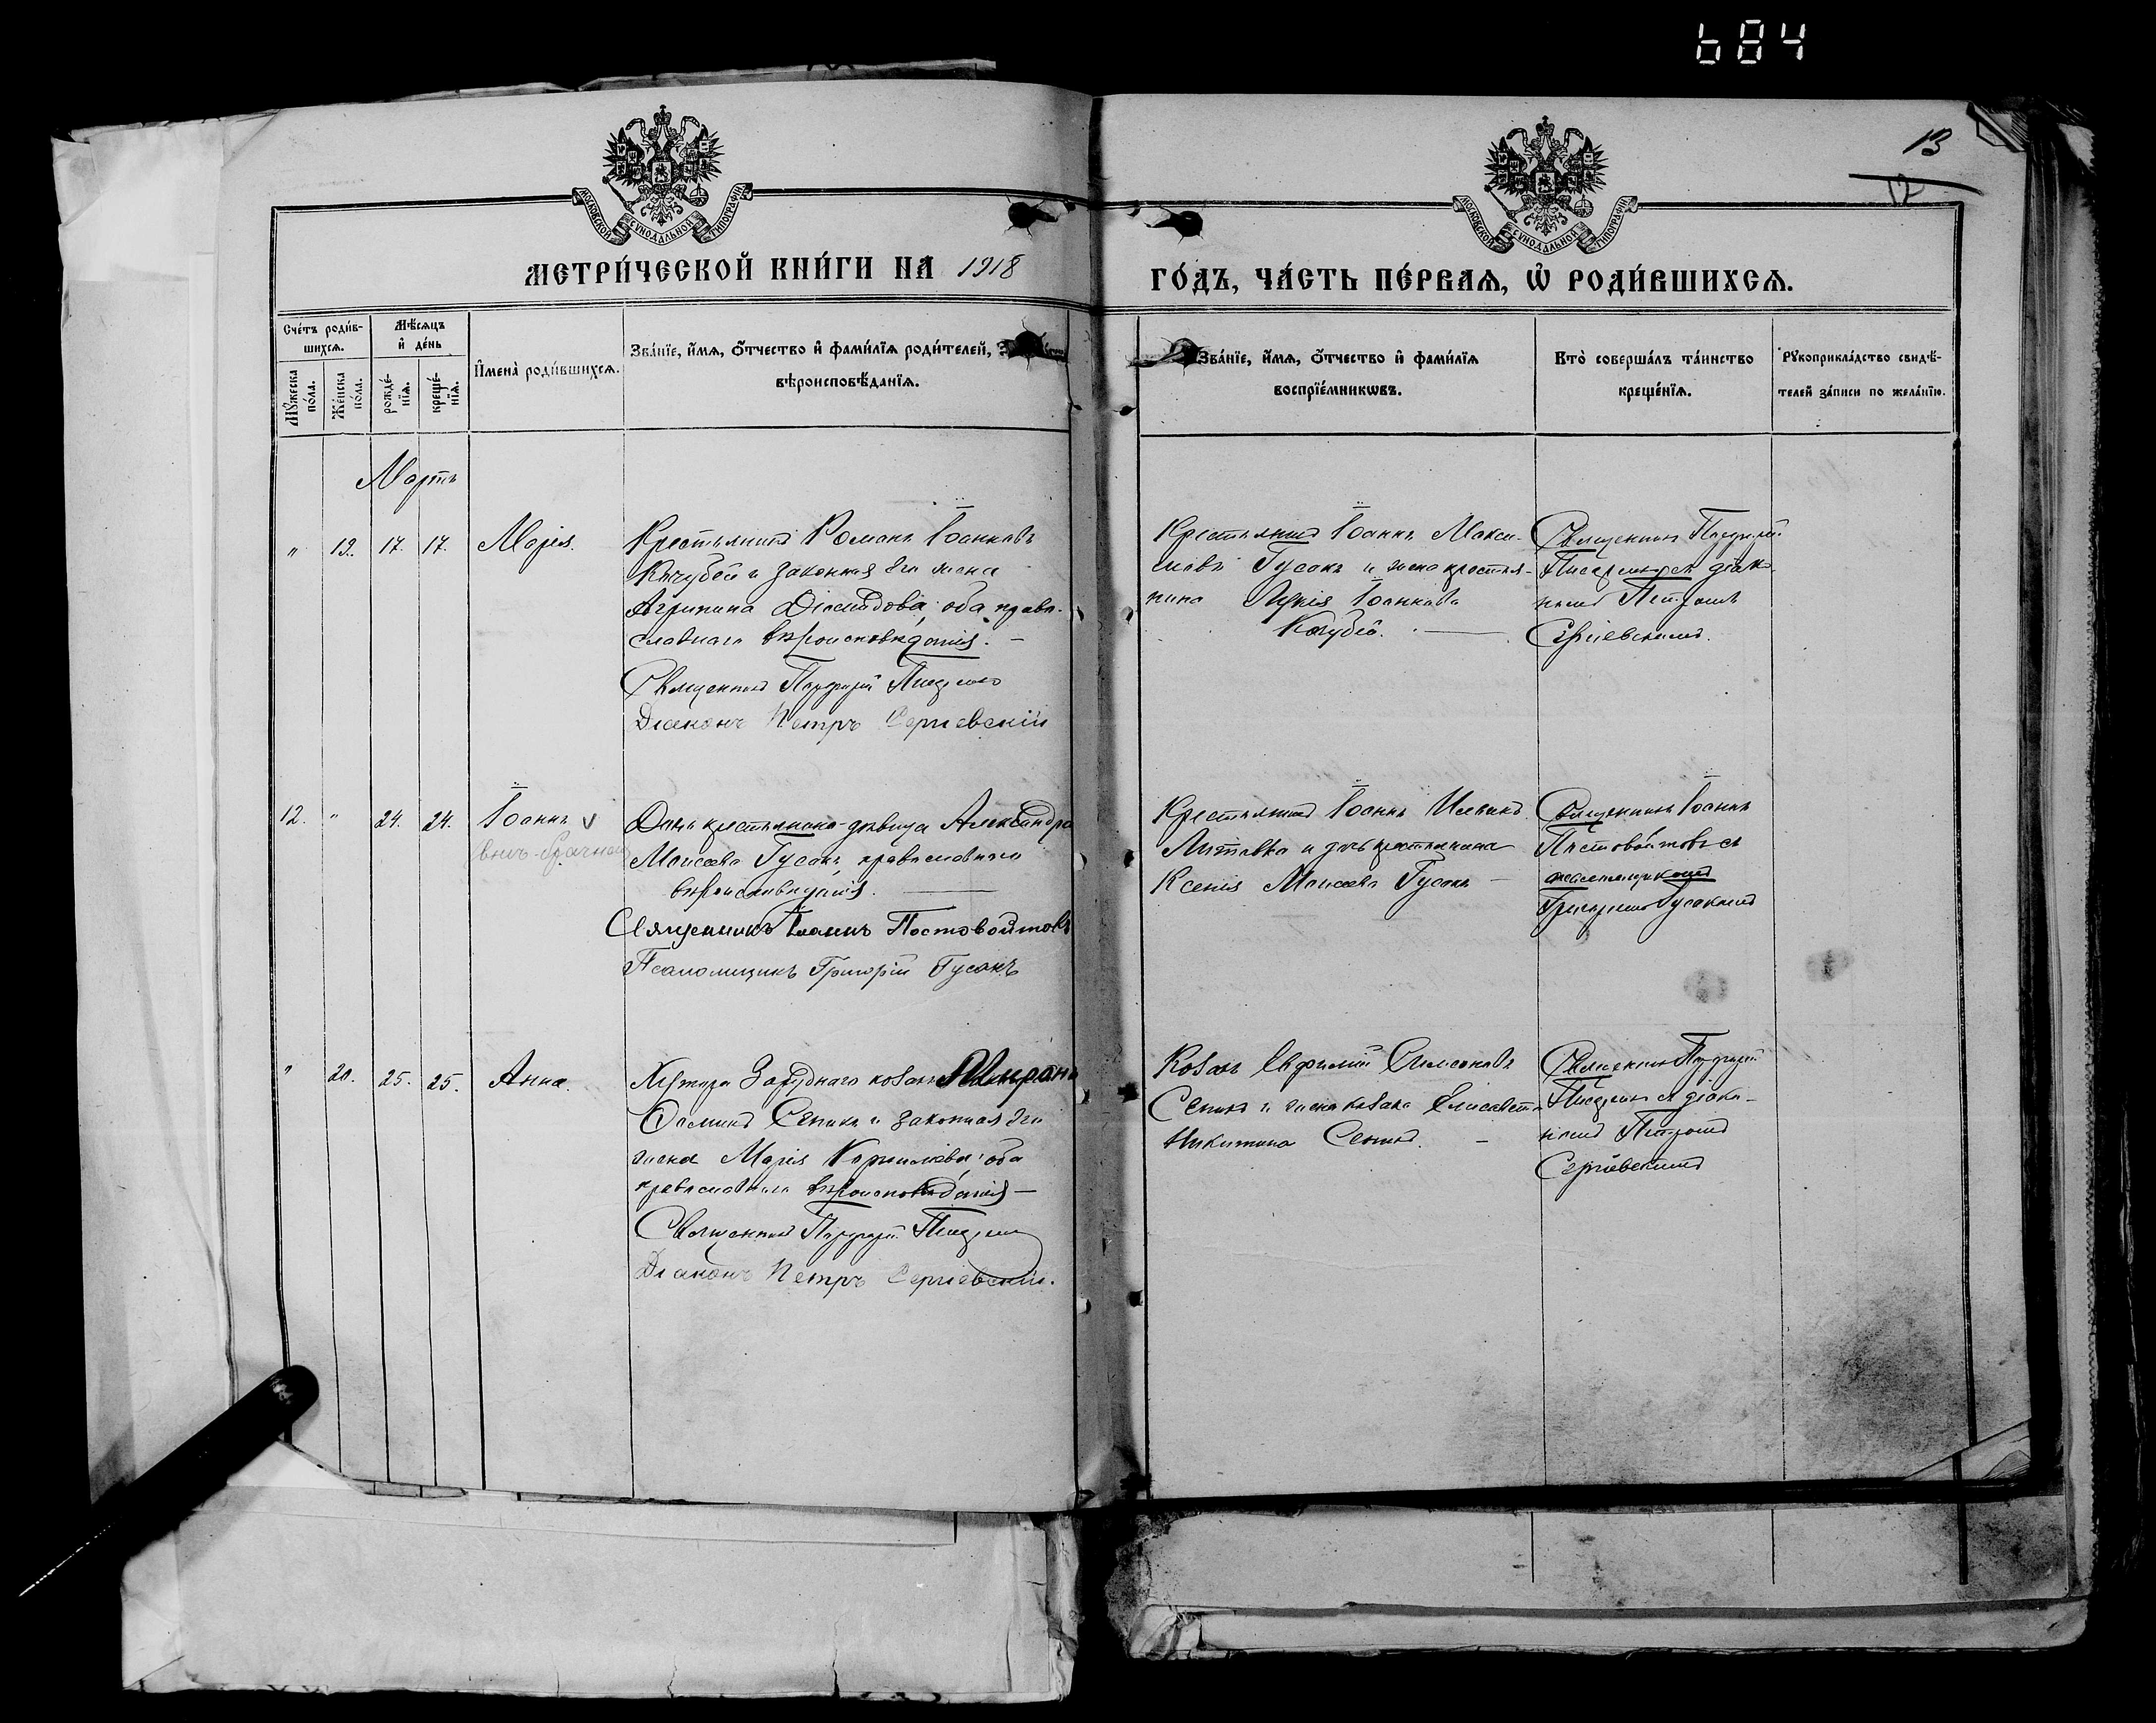 684
13
12
МОСКОВСКОЙ СѴНОДАЛЬНОЙ ТИПОГРАФІИ
МОСКОВСКОЙ СѴНОДАЛЬНОЙ ТИПОГРАФІИ
МЕТРИ́ЧЕСКОЙ КНИ́ГИ НА 1918
ГО́ДЪ, ЧА́СТЬ ПЕ́РВАѦ, Ѡ҆ РОДИ́ВШИХСѦ.
Сче́тъ роди́в-
шихсѧ.
Мꙋ́жеска
по́ла.
Же́нска
по́ла.
Мѣ́сѧцъ
и҆ де́нь
рожде́-
нїѧ.
креще́-
нїѧ.
И҆мена̀ роди́вшихсѧ.
Зва́нїе, и҆́мѧ, ѻ҆́тчество и҆ фами́лїѧ роди́телей,
вѣроисповѣ́данїѧ.
Зва́нїе, и҆́мѧ, ѻ҆́тчество и҆ фами́лїѧ
воспрїе́мникѡвъ.
Кто̀ соверша́лъ та́инство
креще́нїѧ.
Рꙋкоприкла́дство свидѣ́-
телей за́писи по жела́нїю.
Мартъ
" 19. 17. 17. Марія.
Крестьянинъ Романъ Іоанновъ
Кочубей и законная его жена
Агрипина Діомидова, оба право-
славнаго вѣроисповѣданія. —
Священникъ Порфирій
Діаконъ Петръ Сергіевскій
Крестьянинъ Іоаннъ Макси-
мовъ Гусакъ и жена крестья-
нина Лукія Іоаннова
Кочубей. —
Священникъ Порфирій
съ діако-
номъ Петромъ
Сергіевскимъ.
12. " 24. 24. Іоаннъ v
внѣ-брачный
Дочь крестьянина-дѣвица Александра
Моисеева Гусакъ, православнаго
вѣроисповѣданія. —
Священникъ Іоаннъ Постовойтовъ
Псаломщикъ Григорій Гусакъ
Крестьянинъ Іоаннъ
и дочь крестьянина
Ксенія Моисеева Гусакъ —
Священникъ Іоаннъ
Постовойтовъ съ
псаломщикомъ
Григоріемъ Гусакомъ
" 20. 25. 25. Анна.
Хутора Заруднаго козакъ
Сеникъ и законная его
жена Марія Корнилова, оба
православнаго вѣроисповѣданія —
Священникъ Порфирій
Діаконъ Петръ Сергіевскій.
Козакъ Евфимій Симоновъ
Сеникъ и жена козака Елисавета
Никитина Сеникъ. —
Священникъ Порфирій
съ діако-
номъ Петромъ
Сергіевскимъ